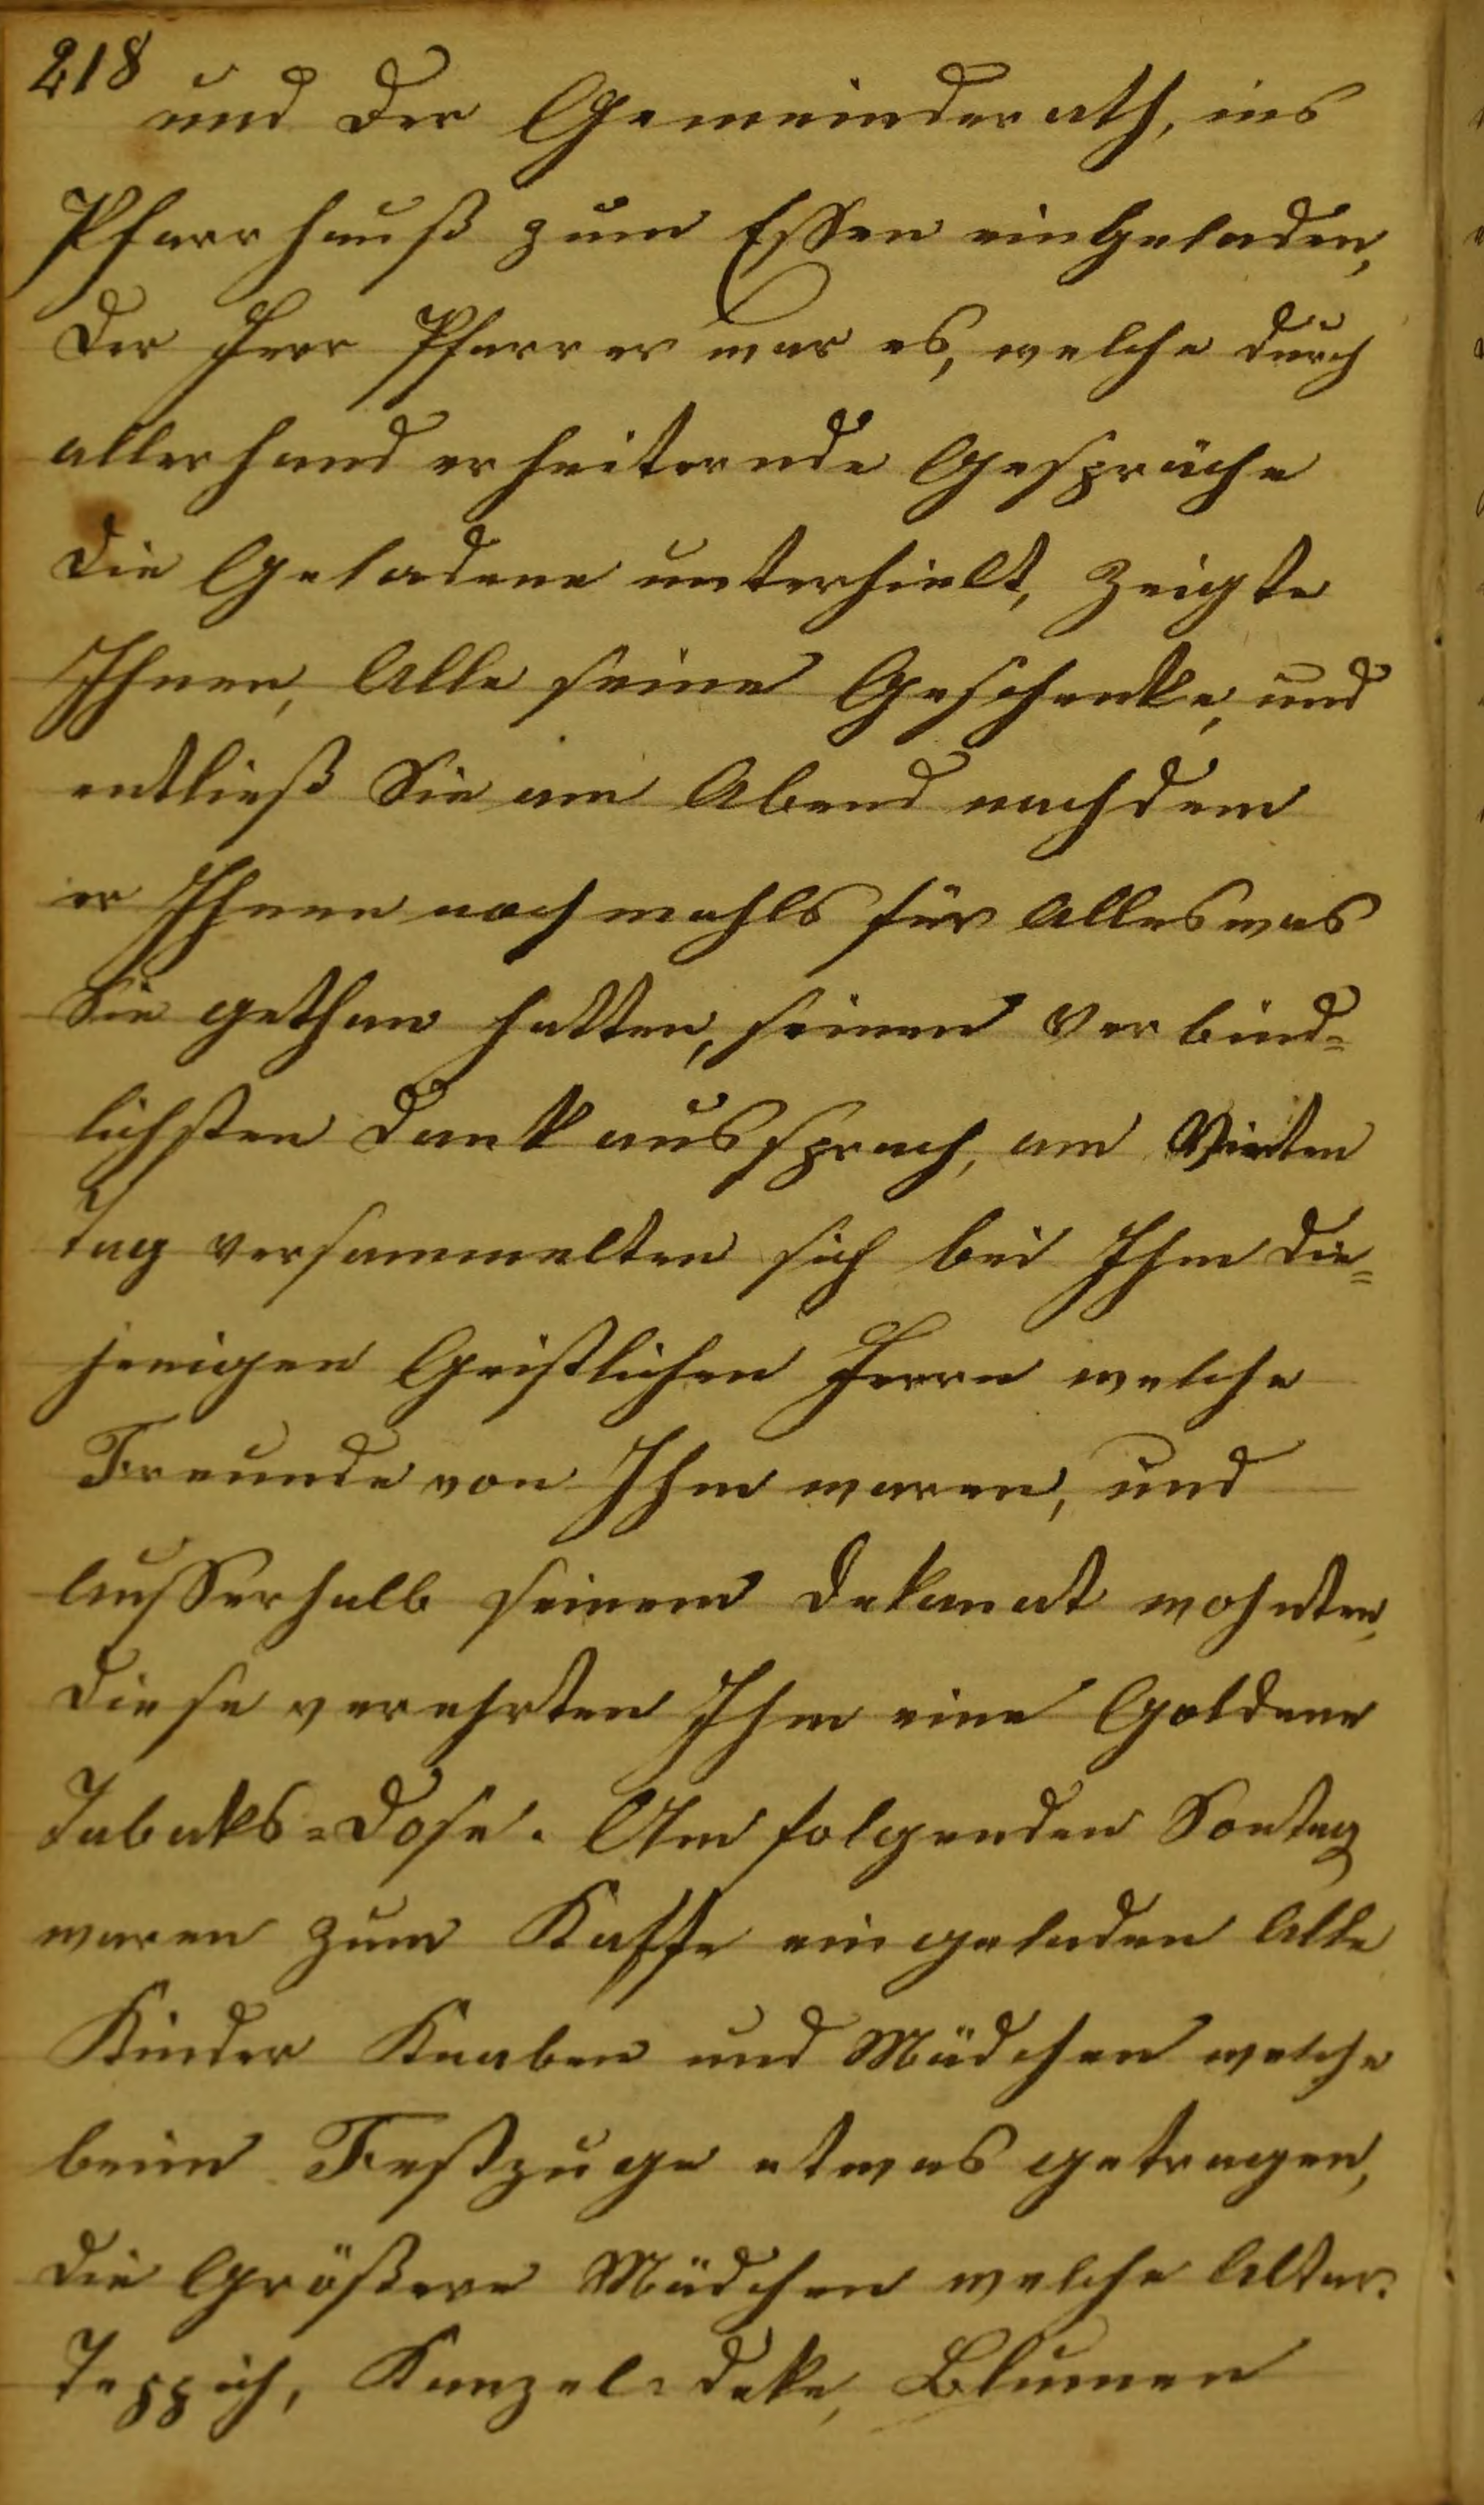 218
und der Gemeinderath, ins
Pfarrhauß zum Essen eingeladen,
der Herr Pfarrer war es, welche durch
allerhand erheiternde Gespräche
die Geladene unterhielt, zeigte
Ihnen, Alle seine Geschenke, und
entließ Sie am Abend nachdem
er Ihnen nochmahls für Alles was
Sie gethan hatten, seinen verbind=
lichsten Dank aussprach, am Vierten
Tag versammelten sich bei Ihm die=
jenigen Geistlichen Herrn welche
Freunde von Ihm waren, und
Ausserhalb seinem Dekanat wohnten,
diese verehrten Ihm eine Goldene
Tabaks=Dose. Am folgenden Sontag
waren zum Kaffe eingeladen Alle
Kinder Knaben und Mädchen welche
beim Festzuge etwas getragen,
die Größere Mädchen welche Altar=
Teppich, Kanzel=deke, Blumen